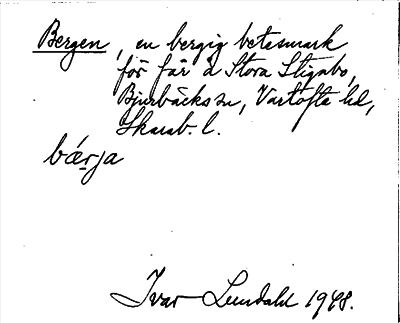 Bergen, en bergig betesmark
för får å Stora Stigabo,
Bjurbäcks sn, Vartofta hd,
Skarab. l.
bærja
Ivar Lundahl 1948.